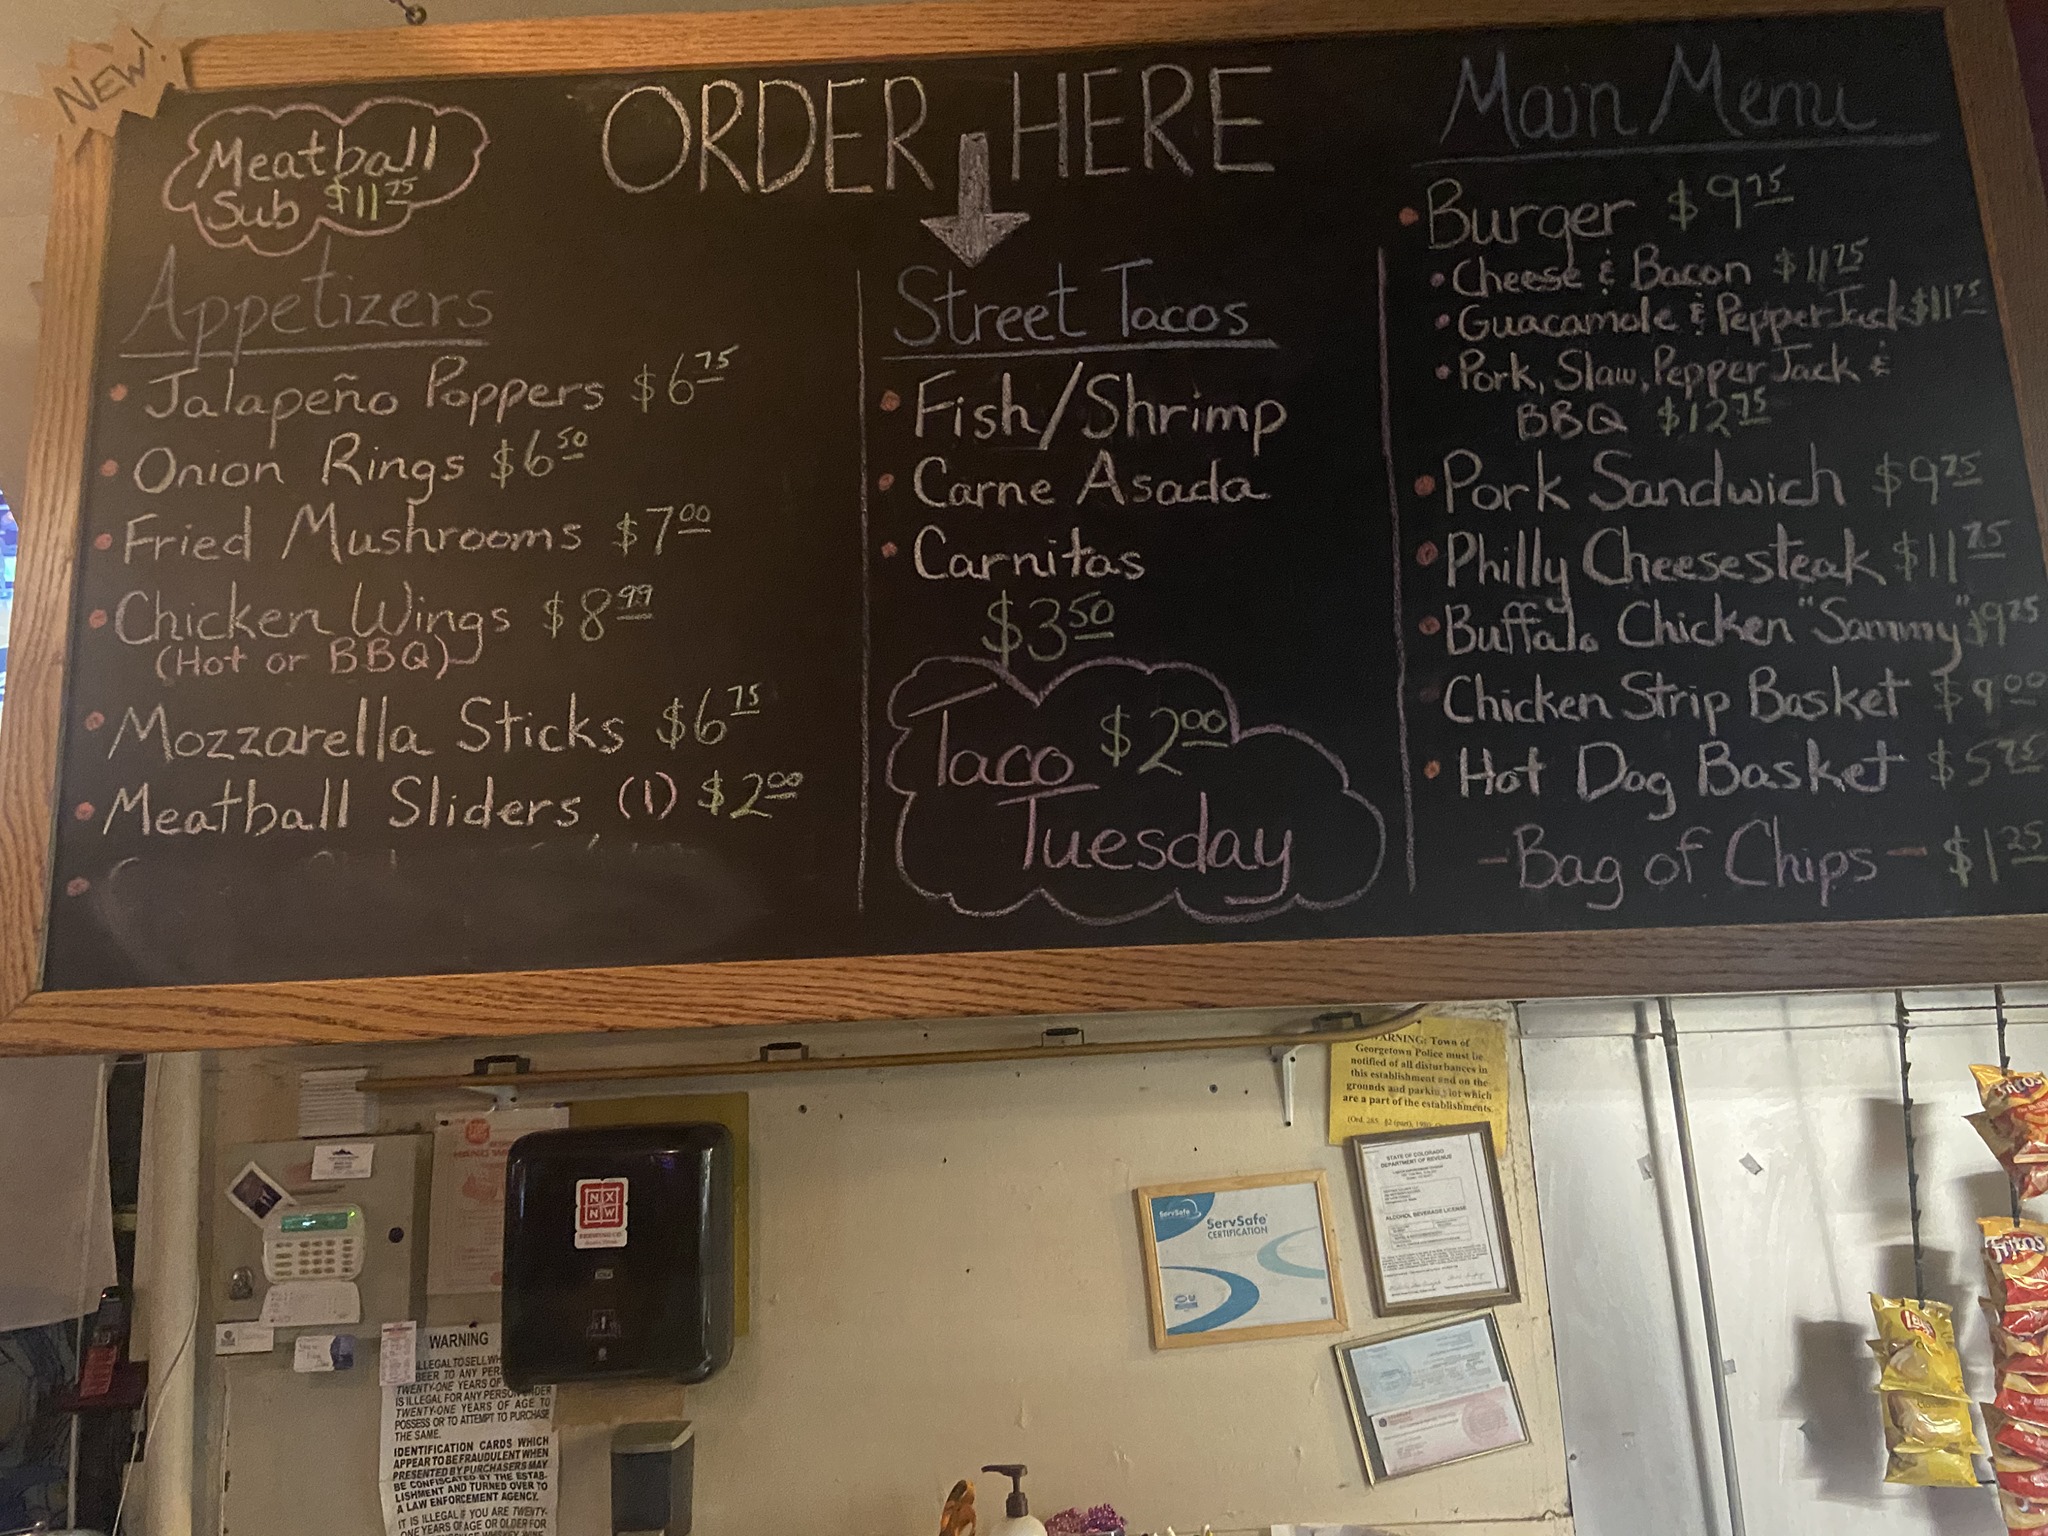 NEW!
Meatball
Sub $11.75
ORDER HERE
Appetizers
Jalapeño Poppers $6.75
Onion Rings $6.50
Fried Mushrooms $7.00
Chicken Wings $8.99
(Hot or BBQ)
Mozzarella Sticks $6.75
Meatball Sliders (1) $2.00
Street Tacos
Fish/Shrimp
Carne Asada
Carnitas
$3.50
Taco $2.00
Tuesday
Main Menu
Burger $9.75
Cheese & Bacon $11.75
Guacamole & Pepper Jack $11.75
Pork, Slaw, Pepper Jack &
BBQ $12.75
Pork Sandwich $9.75
Philly Cheesesteak $11.75
Buffalo Chicken "Sammy" $9.25
Chicken Strip Basket $9.00
Hot Dog Basket $5.75
-Bag of Chips- $1.25
WARNING: Town of
Georgetown Police must be
notified of all disturbances in
this establishment and on the
grounds and parking lot which
are a part of the establishments.
STATE OF COLORADO
DEPARTMENT OF REVENUE
ALCOHOL BEVERAGE LICENSE
ServSafe
ServSafe
CERTIFICATION
NX
NW
WARNING
ILLEGAL TO SELL
BEER TO ANY
TWENTY-ONE YEARS OF
IS ILLEGAL FOR ANY PERSON UNDER
TWENTY-ONE YEARS OF AGE TO
POSSESS OR TO ATTEMPT TO PURCHASE
THE SAME.
IDENTIFICATION CARDS WHICH
APPEAR TO BE FRAUDULENT WHEN
PRESENTED BY PURCHASERS MAY
BE CONFISCATED BY THE ESTAB-
LISHMENT AND TURNED OVER TO
A LAW ENFORCEMENT AGENCY.
IT IS ILLEGAL IF YOU ARE TWENTY-
ONE YEARS OF AGE OR OLDER FOR
Fritos
Fritos
Lay's